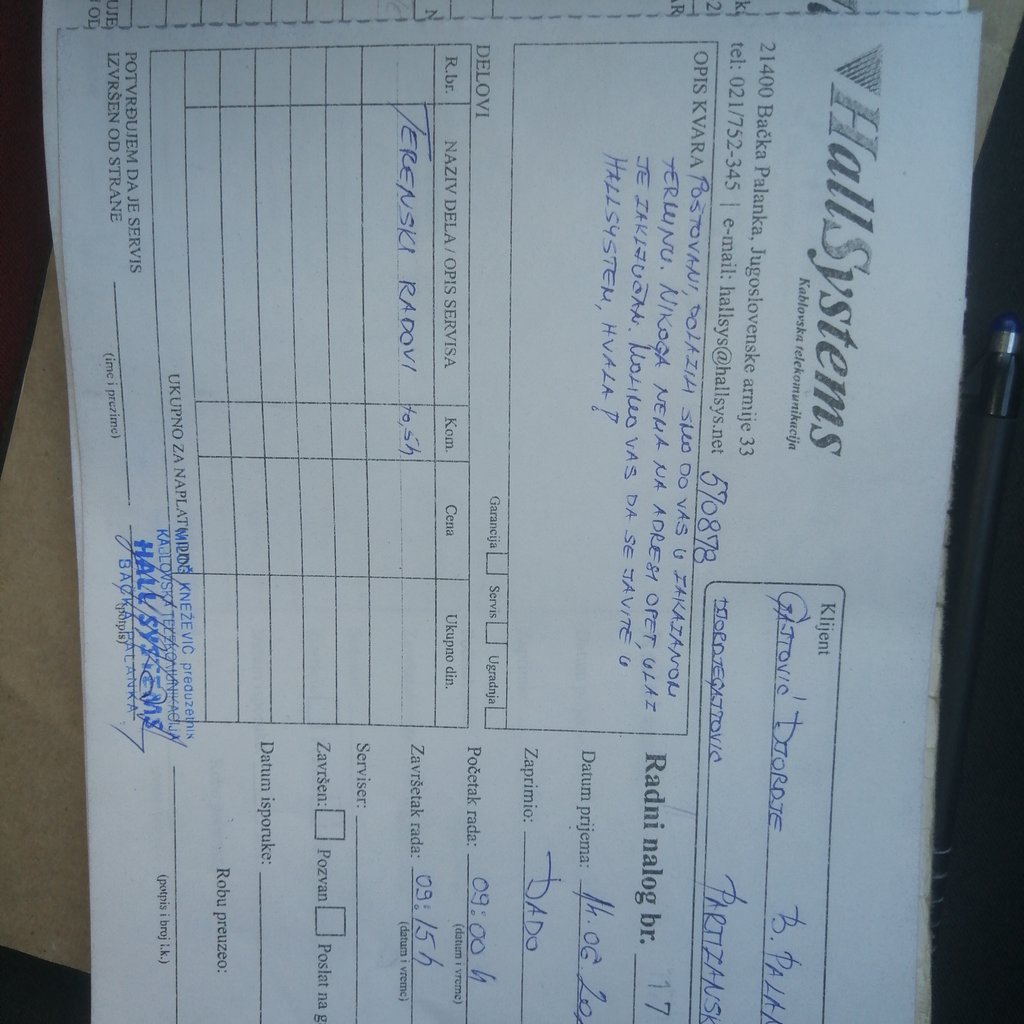 HallSystems
Kablovska telekomunikacija
21400 Bačka Palanka, Jugoslovenske armije 33
tel: 021/752-345 | e-mail: hallsys@hallsys.net
570878
Klijent
GAJTOVIĆ DJORDJE B. PALAN
DJORDJEGAJTOVIC PARTIZANSK
OPIS KVARA POŠTOVANI, DOLAZILI SMO DO VAS U ZAKAZANOM
TERMINU. NIKOGA NEMA NA ADRESI OPET, ULAZ
JE ZAKLJUČAN. MOLIMO VAS DA SE JAVITE U
HALLSYSTEM, HVALA!
Radni nalog br. 17
Datum prijema: 14.06.20
Zaprimio: DADO
Garancija Servis Ugradnja
DELOVI
R.br. NAZIV DELA / OPIS SERVISA Kom. Cena Ukupno din.
TERENSKI RADOVI 0,5h
Početak rada: 09:00 h
(datum i vreme)
Završetak rada: 09:15 h
(datum i vreme)
Serviser:
Završen: Pozvan Poslat na g
Datum isporuke:
UKUPNO ZA NAPLATU
Robu preuzeo:
POTVRĐUJEM DA JE SERVIS
IZVRŠEN OD STRANE
(ime i prezime)
(potpis)
(potpis i broj i.k.)
MILOŠ KNEŽEVIĆ preduzetnik
KABLOVSKA TELEKOMUNIKACIJA
HALL SYSTEMS
BAČKA PALANKA